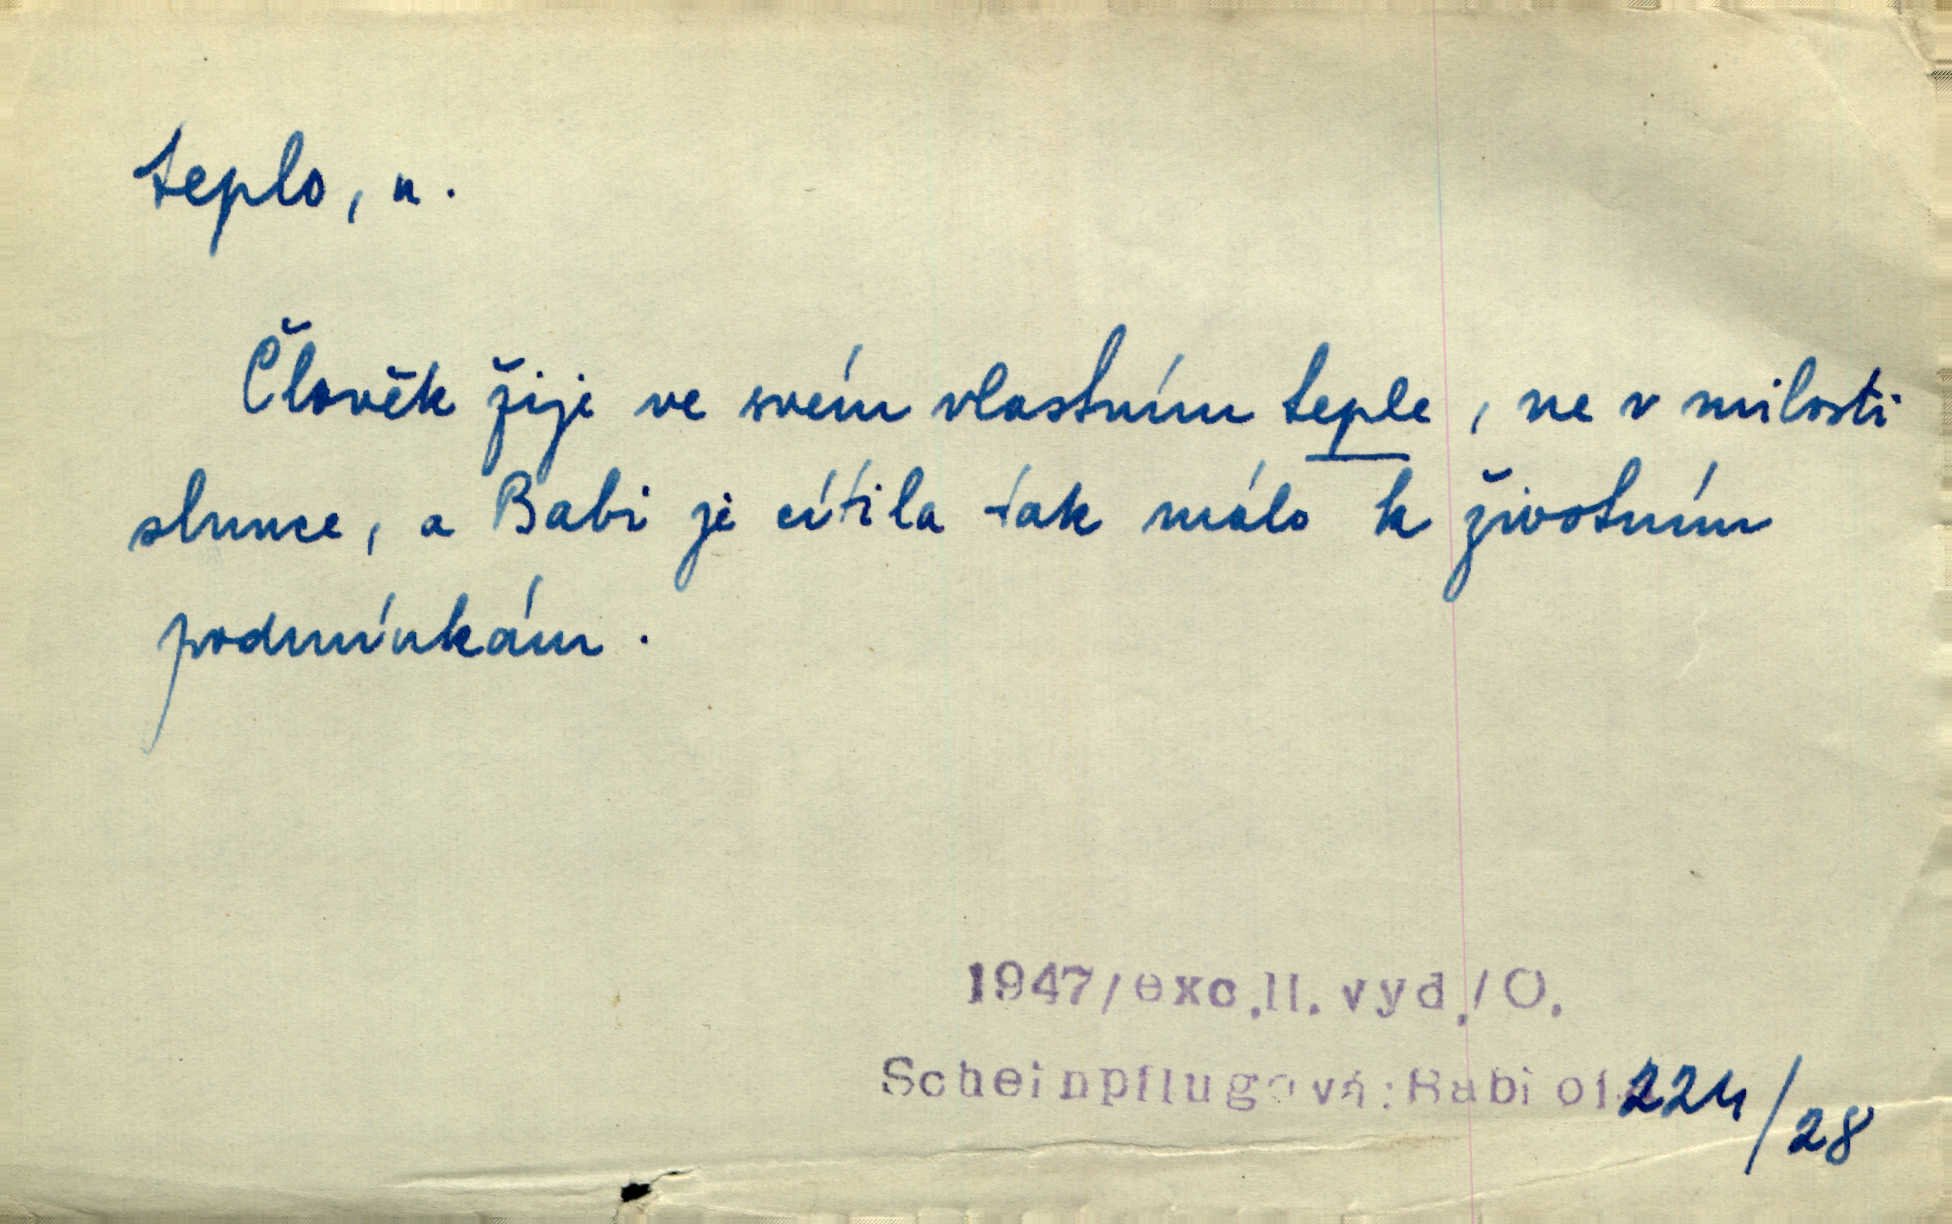 teplo, n.
Člověk žije ve svém vlastním teple, ne v milosti
slunce, a Babi je cítila tak málo k životním
podmínkám.
1947/exc.II.vyd./O.
Scheinpflugová: Babiola 224/28